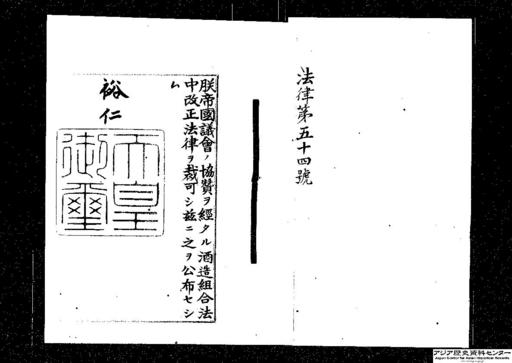 法律第五十四號
朕帝國議會ノ協贊ヲ經タル酒造組合法
中改正法律ヲ裁可シ茲ニ之ヲ公布セシ
ム
裕仁
天皇
御璽
アジア歴史資料センター
Japan Center for Asian Historical Records